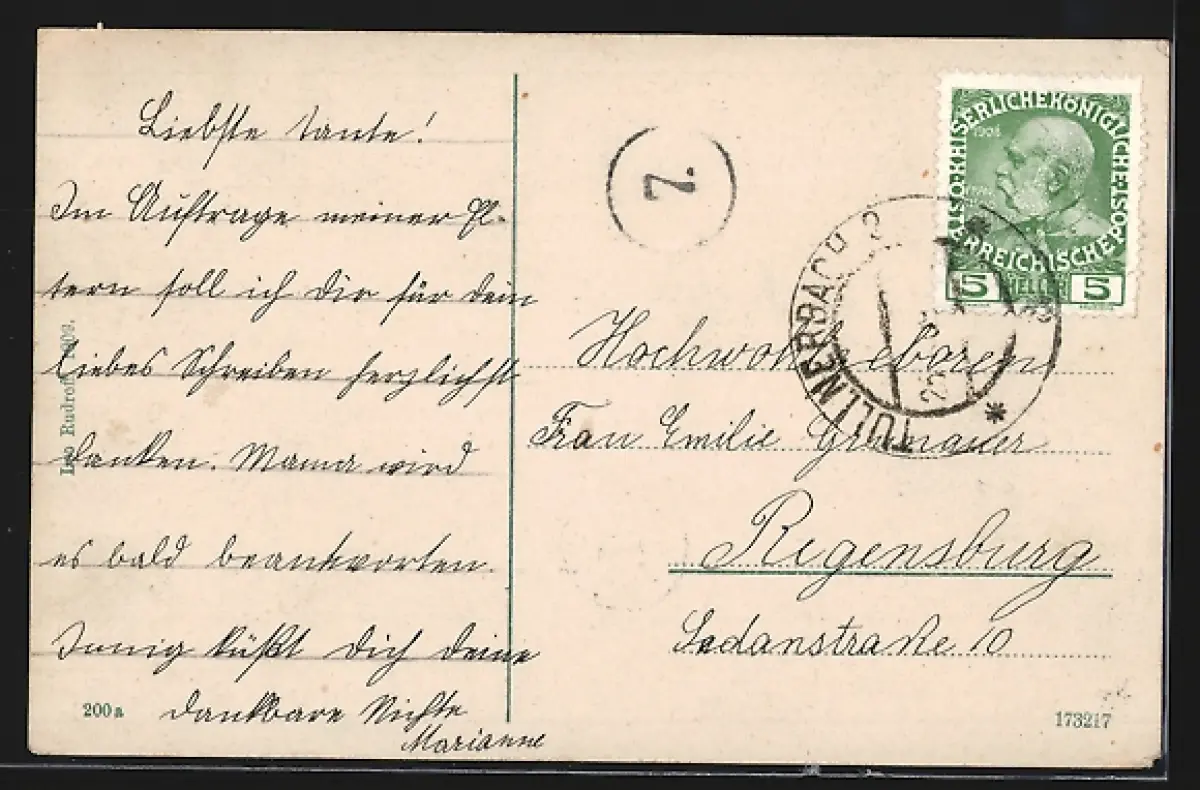 Liebste Tante!
Im Auftrage meiner El-
tern soll ich Dir für dein
liebes Schreiben herzlichst
danken. Mama wird
es bald beantworten.
Innig küßt Dich deine
dankbare Nichte
Marianne
200a
2
ÖSTERREICHISCHE POST KAISERLICHE KÖNIGLICHE
1908
5 HELLER 5
TULLNERBACH 2
Hochwohlgeboren
Frau Emilie
Regensburg
Sedanstraße 10
173217
Leo Rudroff 1909.